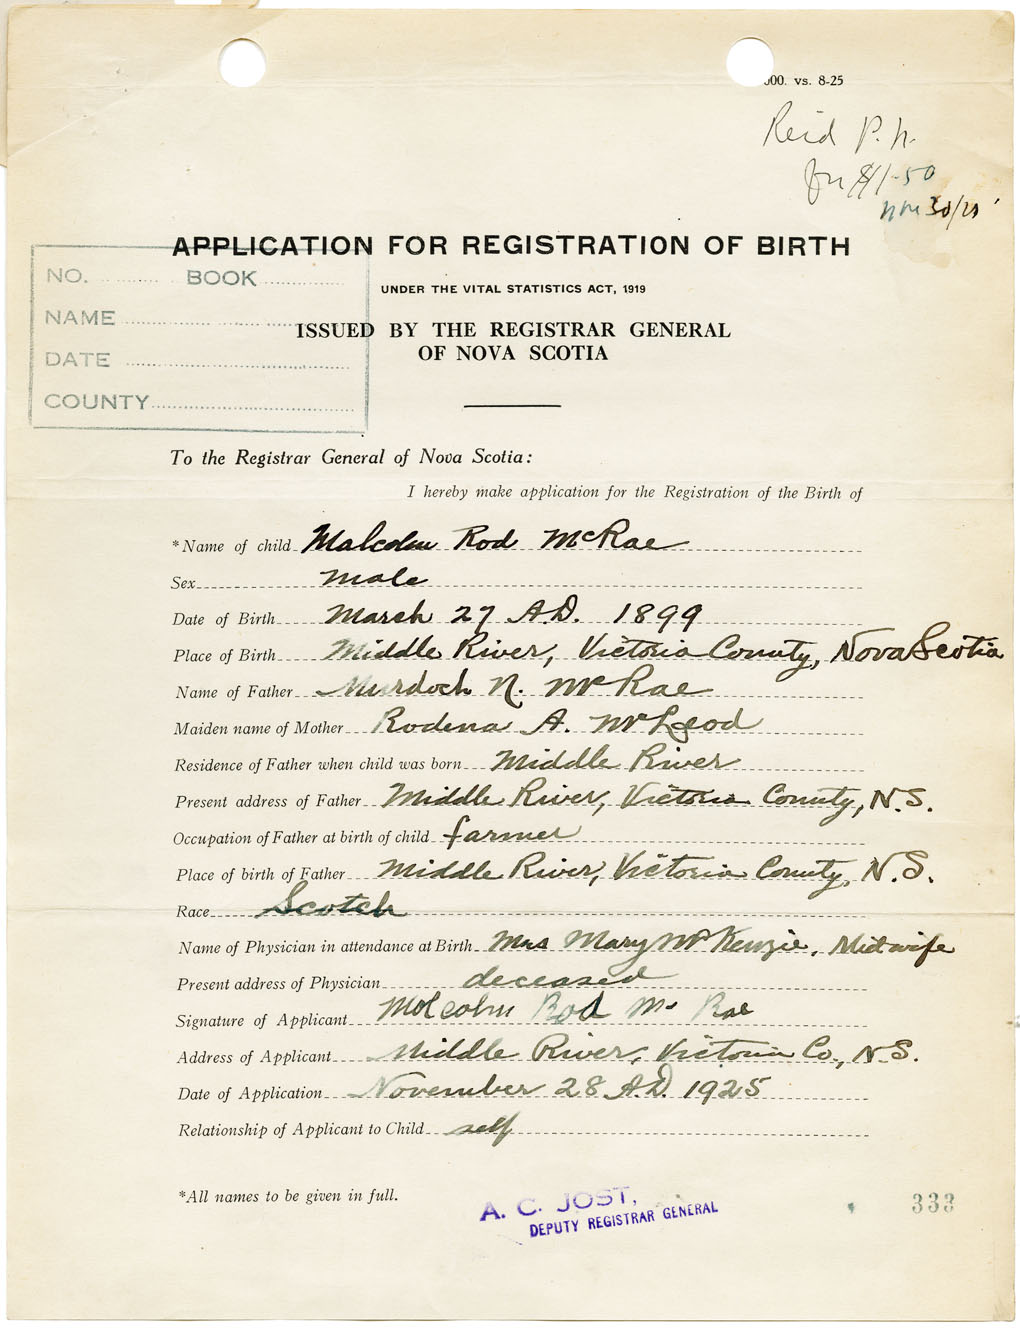 000. vs. 8-25
P. N.
for $1.50
Nov 30/25
APPLICATION FOR REGISTRATION OF BIRTH
NO. BOOK
UNDER THE VITAL STATISTICS ACT, 1919
NAME
ISSUED BY THE REGISTRAR GENERAL
OF NOVA SCOTIA
DATE
COUNTY
To the Registrar General of Nova Scotia:
I hereby make application for the Registration of the Birth of
*Name of child Malcolm Rod McRae
Sex Male
Date of Birth March 27 A.D. 1899
Place of Birth Middle River, Victoria County, Nova Scotia
Name of Father Murdoch N. McRae
Maiden name of Mother Rodena A. McLeod
Residence of Father when child was born Middle River
Present address of Father Middle River, Victoria County, N.S.
Occupation of Father at birth of child farmer
Place of birth of Father Middle River, Victoria County, N.S.
Race Scotch
Name of Physician in attendance at Birth Mrs Mary McKenzie, Midwife
Present address of Physician deceased
Signature of Applicant Molcolm Rod Mc Rae
Address of Applicant Middle River, Victoria Co., N.S.
Date of Application November 28 A.D. 1925
Relationship of Applicant to Child self
*All names to be given in full.
A. C. JOST,
DEPUTY REGISTRAR GENERAL
333